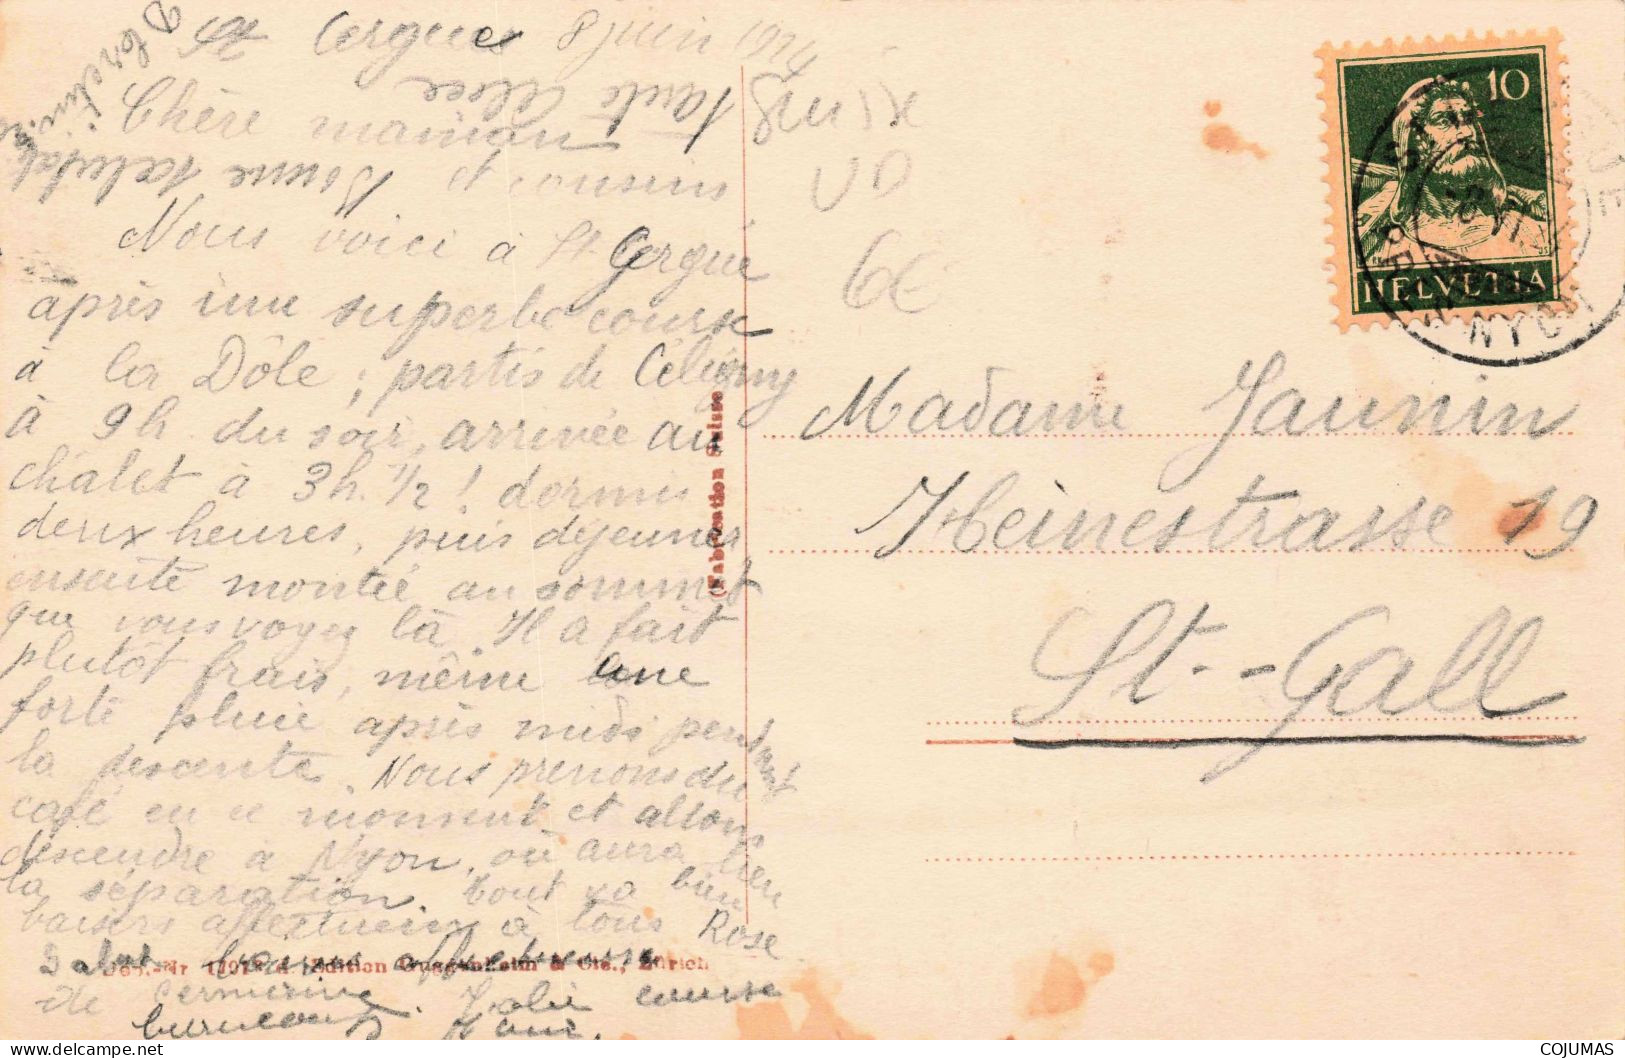 St Cergues 8 juin 1924
Chère maman
et cousins
Nous voici à St. Cergue
après une superbe course
à la Dôle ; partis de Céligny
à 9h. du soir, arrivée au
châlet à 3h. 1/2 ! dormis
deux heures, puis déjeuner
ensuite montée au sommet
que vous voyez là. Il a fait
plutôt frais, même une
forte pluie après midi pendant
la descente. Nous prenons du
café en ce moment et allons
descendre à Nyon, où aura lieu
la séparation. Tout va bien
baisers affectueux à tous Rose
de Germaine. Jolie course
tante Alice
Bonne
Suisse
VD
6€
10
HELVETIA
NYON
Madame Jaunin
Heinestrasse 19
St.-Gall
(Fabrication Suisse)
Edition Guggenheim & Cie., Zürich
COJUMAS